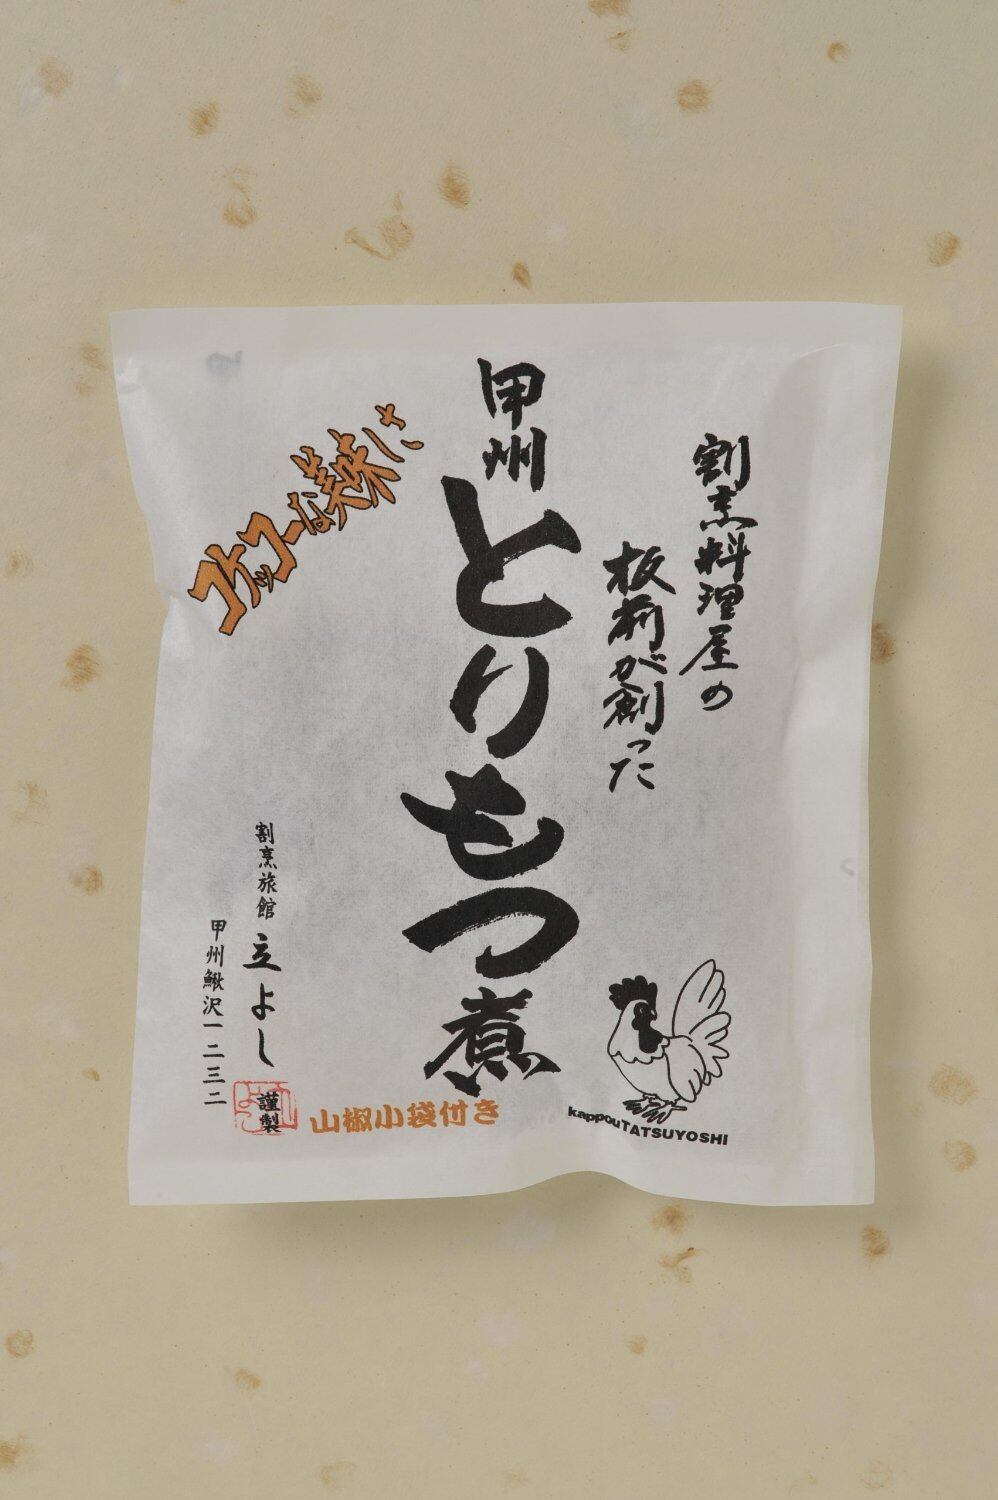 割烹料理屋の
板前が創った
甲州
とりもつ煮
コケッコーな美味さ
割烹旅館 立よし
謹製
甲州鰍沢一二三二
山椒小袋付き
kappou TATSUYOSHI